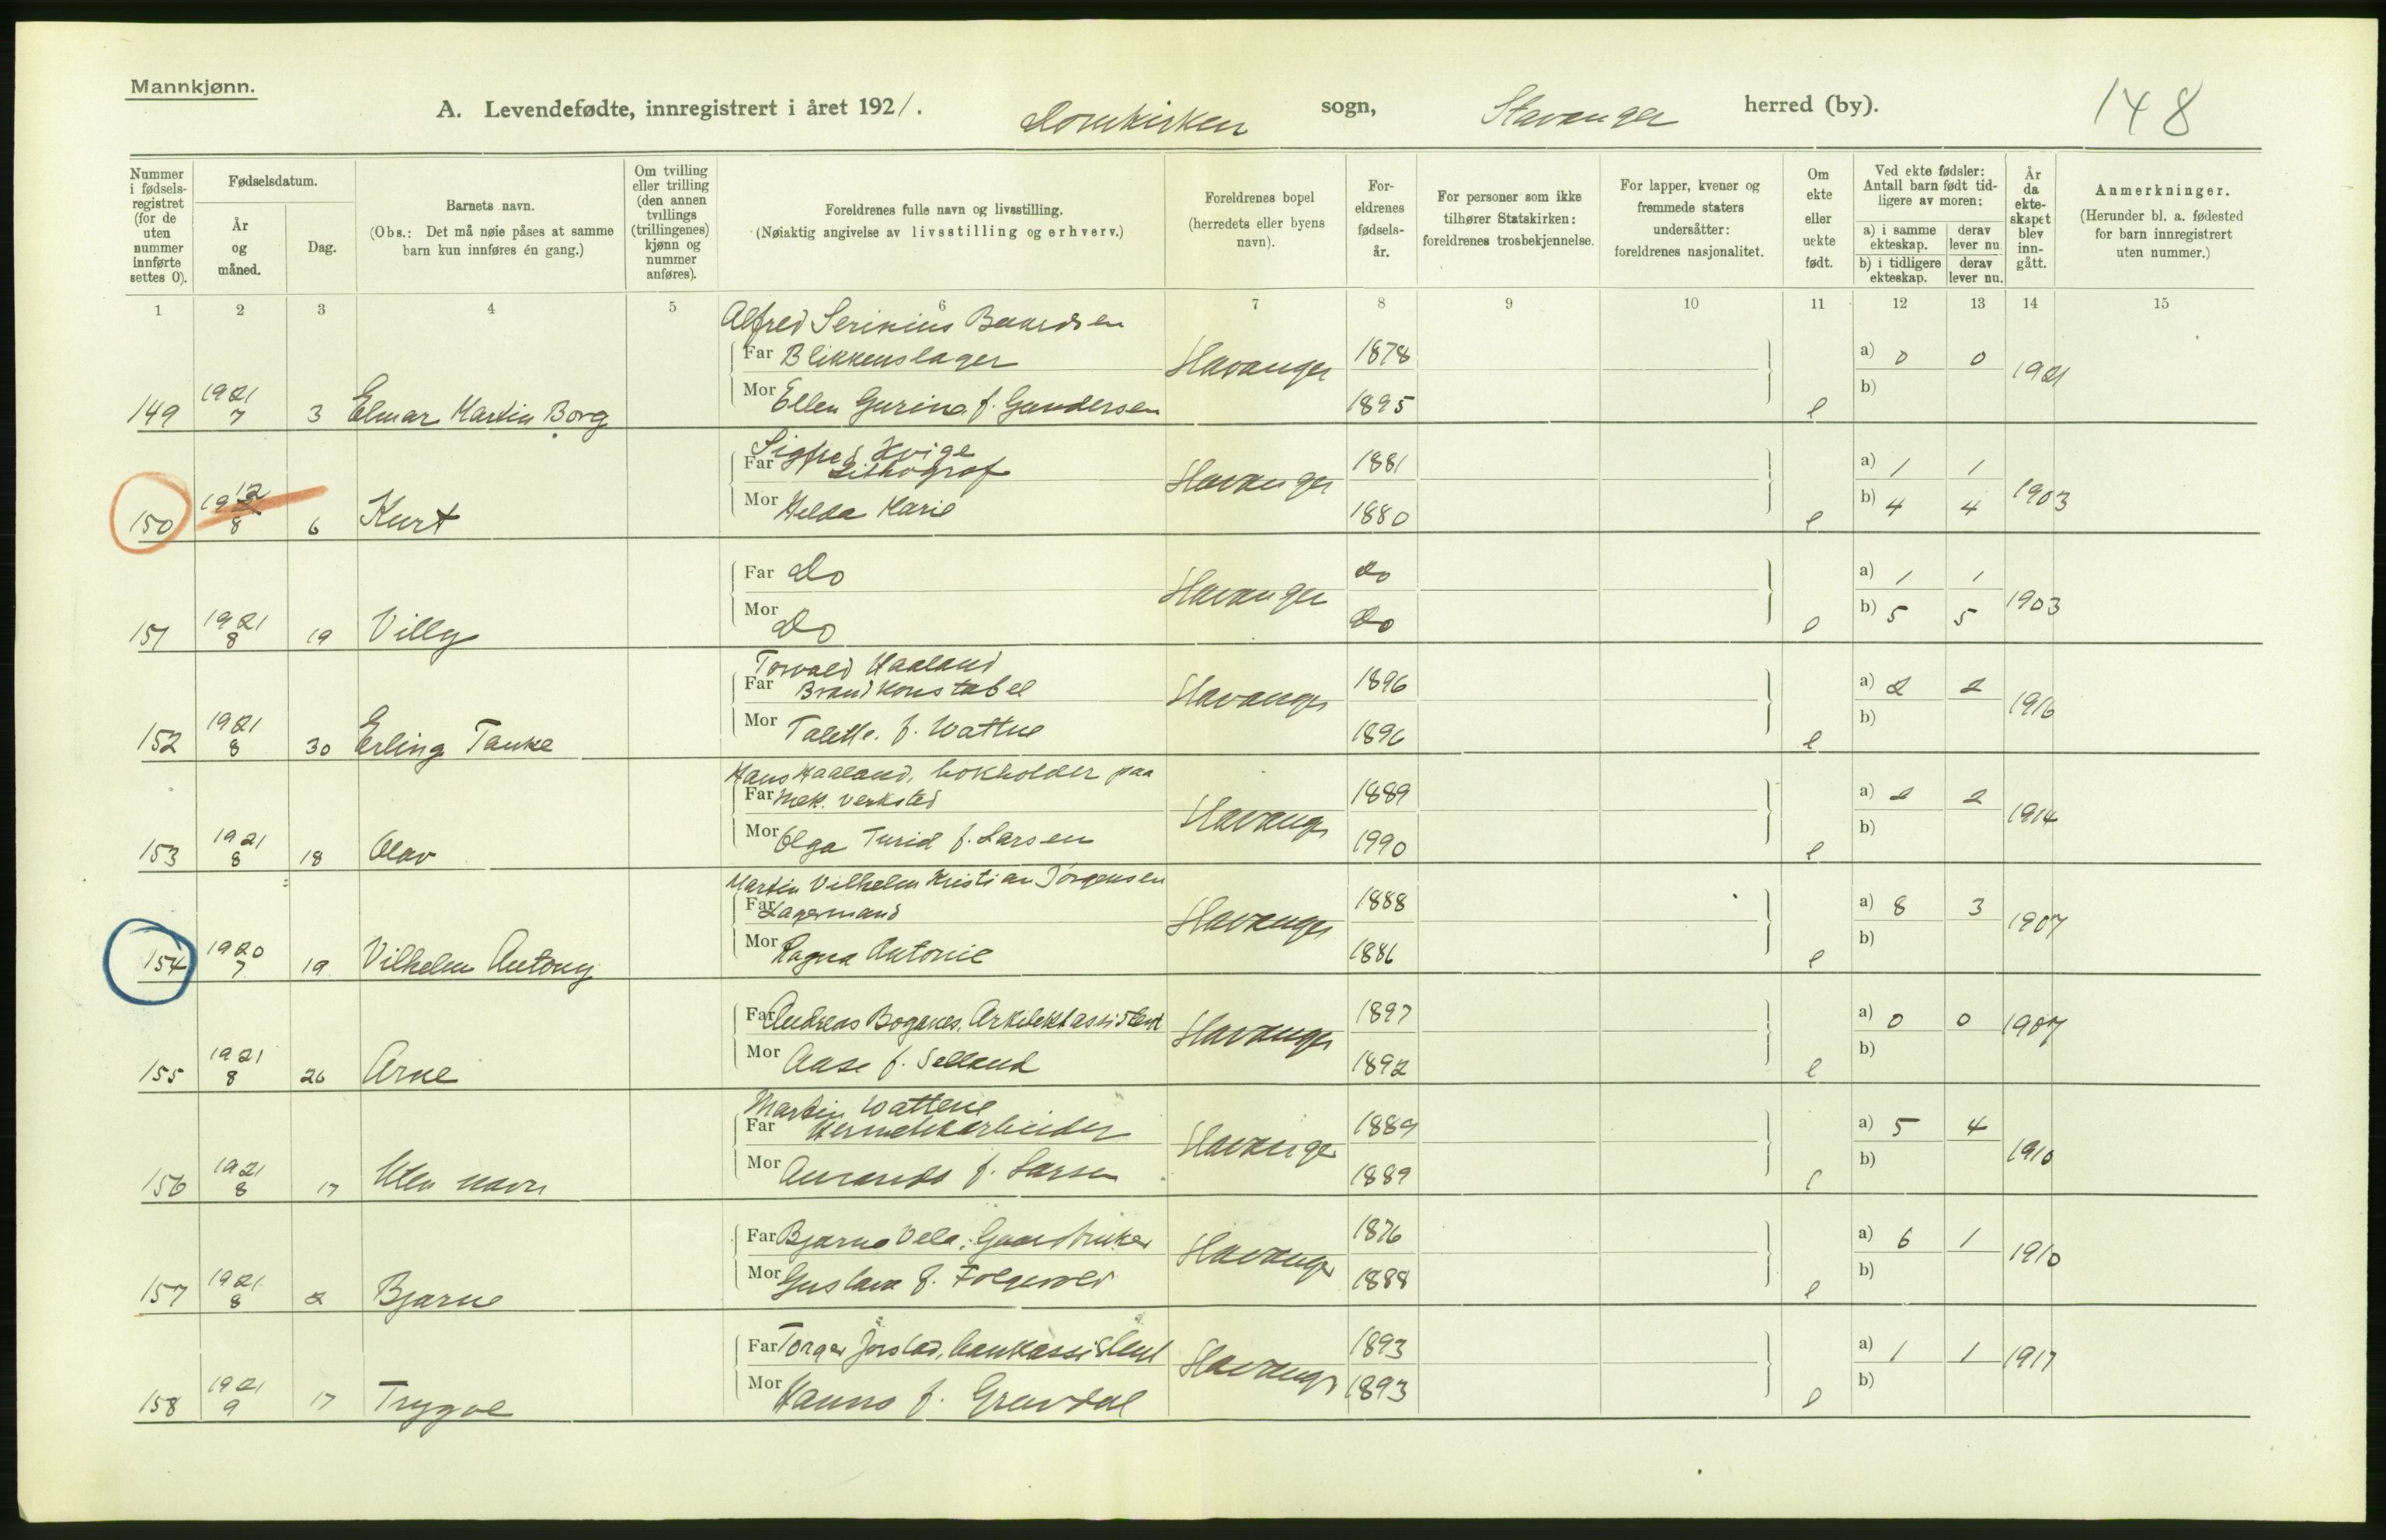 Mannkjønn.
A. Levendefødte, innregistrert i året 1921. Domkirken sogn, Stavanger herred (by). 148
Nummer i fødsels-registret (for de uten nummer innførte settes 0).
Fødselsdatum.
År og måned.
Dag.
Barnets navn.
(Obs.: Det må nøie påses at samme barn kun innføres én gang.)
Om tvilling eller trilling (den annen tvillings (trillingenes) kjønn og nummer anføres).
Foreldrenes fulle navn og livsstilling.
(Nøiaktig angivelse av livsstilling og erhverv.)
Foreldrenes bopel
(herredets eller byens navn).
For-eldrenes fødsels-år.
For personer som ikke tilhører Statskirken: foreldrenes trosbekjennelse.
For lapper, kvener og fremmede staters undersåtter: foreldrenes nasjonalitet.
Om ekte eller uekte født.
Ved ekte fødsler: Antall barn født tid-ligere av moren:
a) i samme ekteskap.
derav lever nu.
b) i tidligere ekteskap.
derav lever nu.
År da ekte-skapet blev inn-gått.
Anmerkninger.
(Herunder bl. a. fødested for barn innregistrert uten nummer.)
1 2 3 4 5 6 7 8 9 10 11 12 13 14 15
Alfred Serinius
Far Blikkenslager Stavanger 1878 a) 0 0 1921
149 1921 7 3 Elmar Martin Borg Mor Ellen Gurina f. Gundersen 1895 e b)
Sigfred Hvige
Far Lithograf Stavanger 1881 a) 1 1 1903
150 1912 8 6 Kurt Mor Helda Marie 1880 e b) 4 4
Far Do Stavanger do a) 1 1 1903
151 1921 8 19 Villy Mor Do Do e b) 5 5
Torvald Haaland
Far Brandkonstabel Stavanger 1896 a) 2 2 1916
152 1921 8 30 Erling Tanke Mor Talette f. Wattne 1896 e b)
Hans Haaland, bokholder paa
Far mek. verksted Stavanger 1889 a) 2 2 1914
153 1921 8 18 Olav Mor Olga Turid f. Larsen 1990 e b)
Martin Vilhelm Kristian Jørgensen
Far Lagermand Stavanger 1888 a) 8 3 1907
154 1920 7 19 Vilhelm Antony Mor Ragna Antonie 1886 e b)
Far Andreas Boganes, Arkitektassistent Stavanger 1897 a) 0 0 1907
155 1921 8 26 Arne Mor Aase f. Selland 1892 e b)
Martin Wattene
Far Hermetikarbeider Stavanger 1889 a) 5 4 1910
156 1921 8 17 Uten navn Mor Amanda f. Larsen 1889 e b)
Far Bjarne Gaardbruker Stavanger 1876 a) 6 1 1910
157 1921 8 2 Bjarne Mor Gustava f. 1888 e b)
Far Torger Jørstad, bankassistent Stavanger 1893 a) 1 1 1917
158 1921 9 17 Trygve Mor Hanna f. Gravdal 1893 e b)